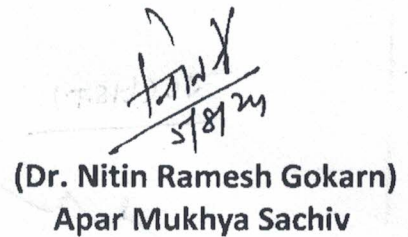 5/8/24
(Dr. Nitin Ramesh Gokarn)
Apar Mukhya Sachiv